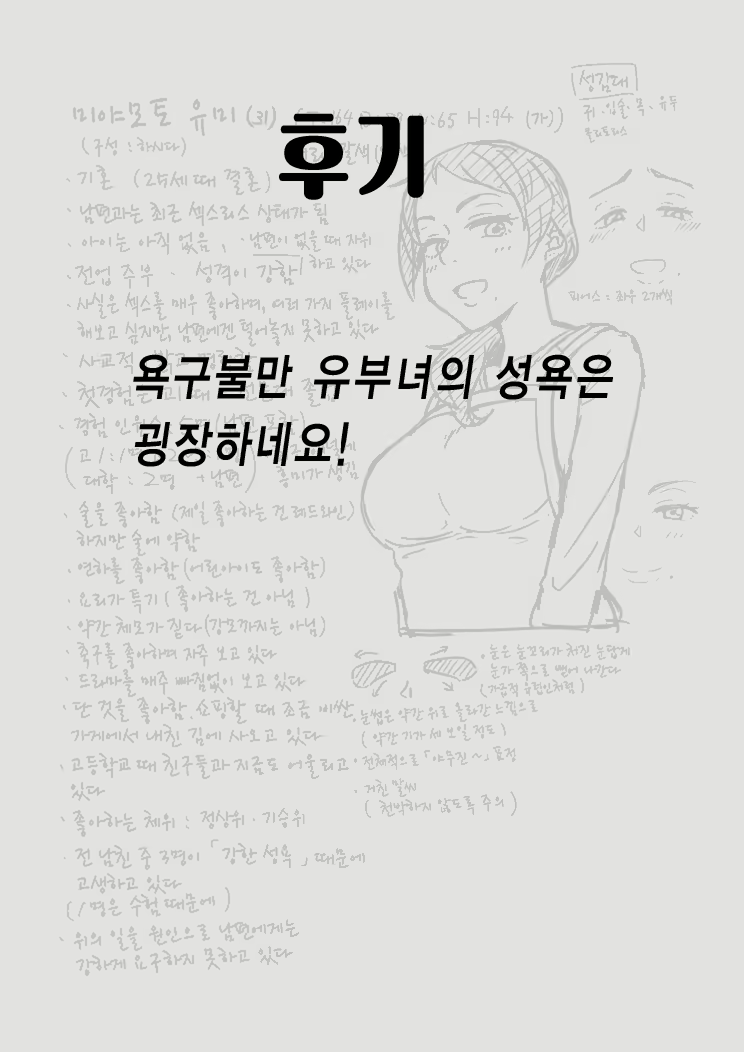 후기
욕구불만 유부녀의 성욕은
굉장하네요!
미야모토 유미 (31) :65 H:94 (가))
(구성 : 하시다)
· 기혼 (25세때 결혼)
· 남편과는 최근 섹스리스 상태가 됨
· 아이는 아직 없음, · 남편이 없을 때 자위
하고 있다
· 전업 주부 · 성격이 강함
· 사실은 섹스를 매우 좋아하며, 여러 가지 플레이를
해보고 싶지만, 남편에겐 털어놓지 못하고 있다
· 사교적
· 첫경험은
· 경험 인원수
(대학 : 2명 → 남편)
흥미가 생김
· 술을 좋아함 (제일 좋아하는 건 레드와인)
하지만 술에 약함
· 연하를 좋아함 (어린아이도 좋아함)
· 요리가 특기 (좋아하는 건 아님)
· 약간 체모가 짙다 (강모까지는 아님)
· 축구를 좋아하며 자주 보고 있다
· 드라마를 매주 빠짐없이 보고 있다
· 단 것을 좋아함. 쇼핑할 때 조금 비싼
가게에서 내친 김에 사오고 있다
· 고등학교 때 친구들과 지금도 어울리고
있다
· 좋아하는 체위 : 정상위 · 기승위
· 전 남친 중 3명이 「강한 성욕」 때문에
고생하고 있다
(1명은 수험 때문에)
· 위의 일을 원인으로 남편에게는
강하게 요구하지 못하고 있다
성감대
귀 · 입술 · 목 · 유두
피어스 : 좌우 2개씩
· 눈은 눈꼬리가 처진 눈답게
눈가 쪽으로 뻗어 나간다
(가급적 유럽인처럼)
· 눈썹은 약간 위로 올라간 느낌으로
(약간 기가 세 보일 정도)
· 전체적으로 「야무진~」 표정
· 거친 말씨
(천박하지 않도록 주의)